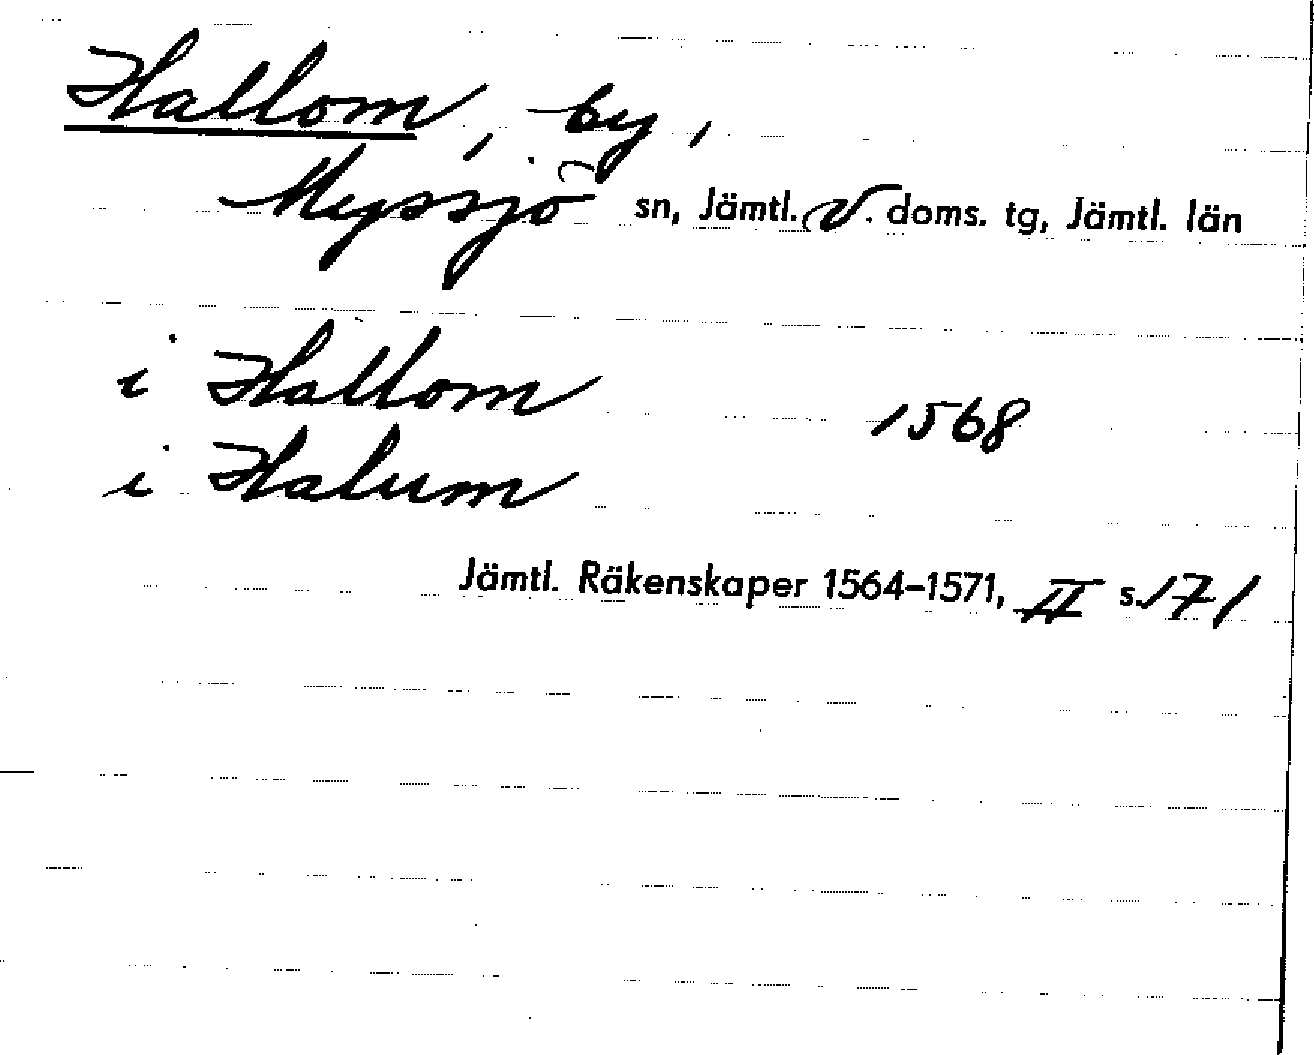 Hallom, by,
Myssjö sn, Jämtl. V. doms. tg, Jämtl. län
i Hallom 1568
i Halum
Jämtl. Räkenskaper 1564–1571, II s. 171